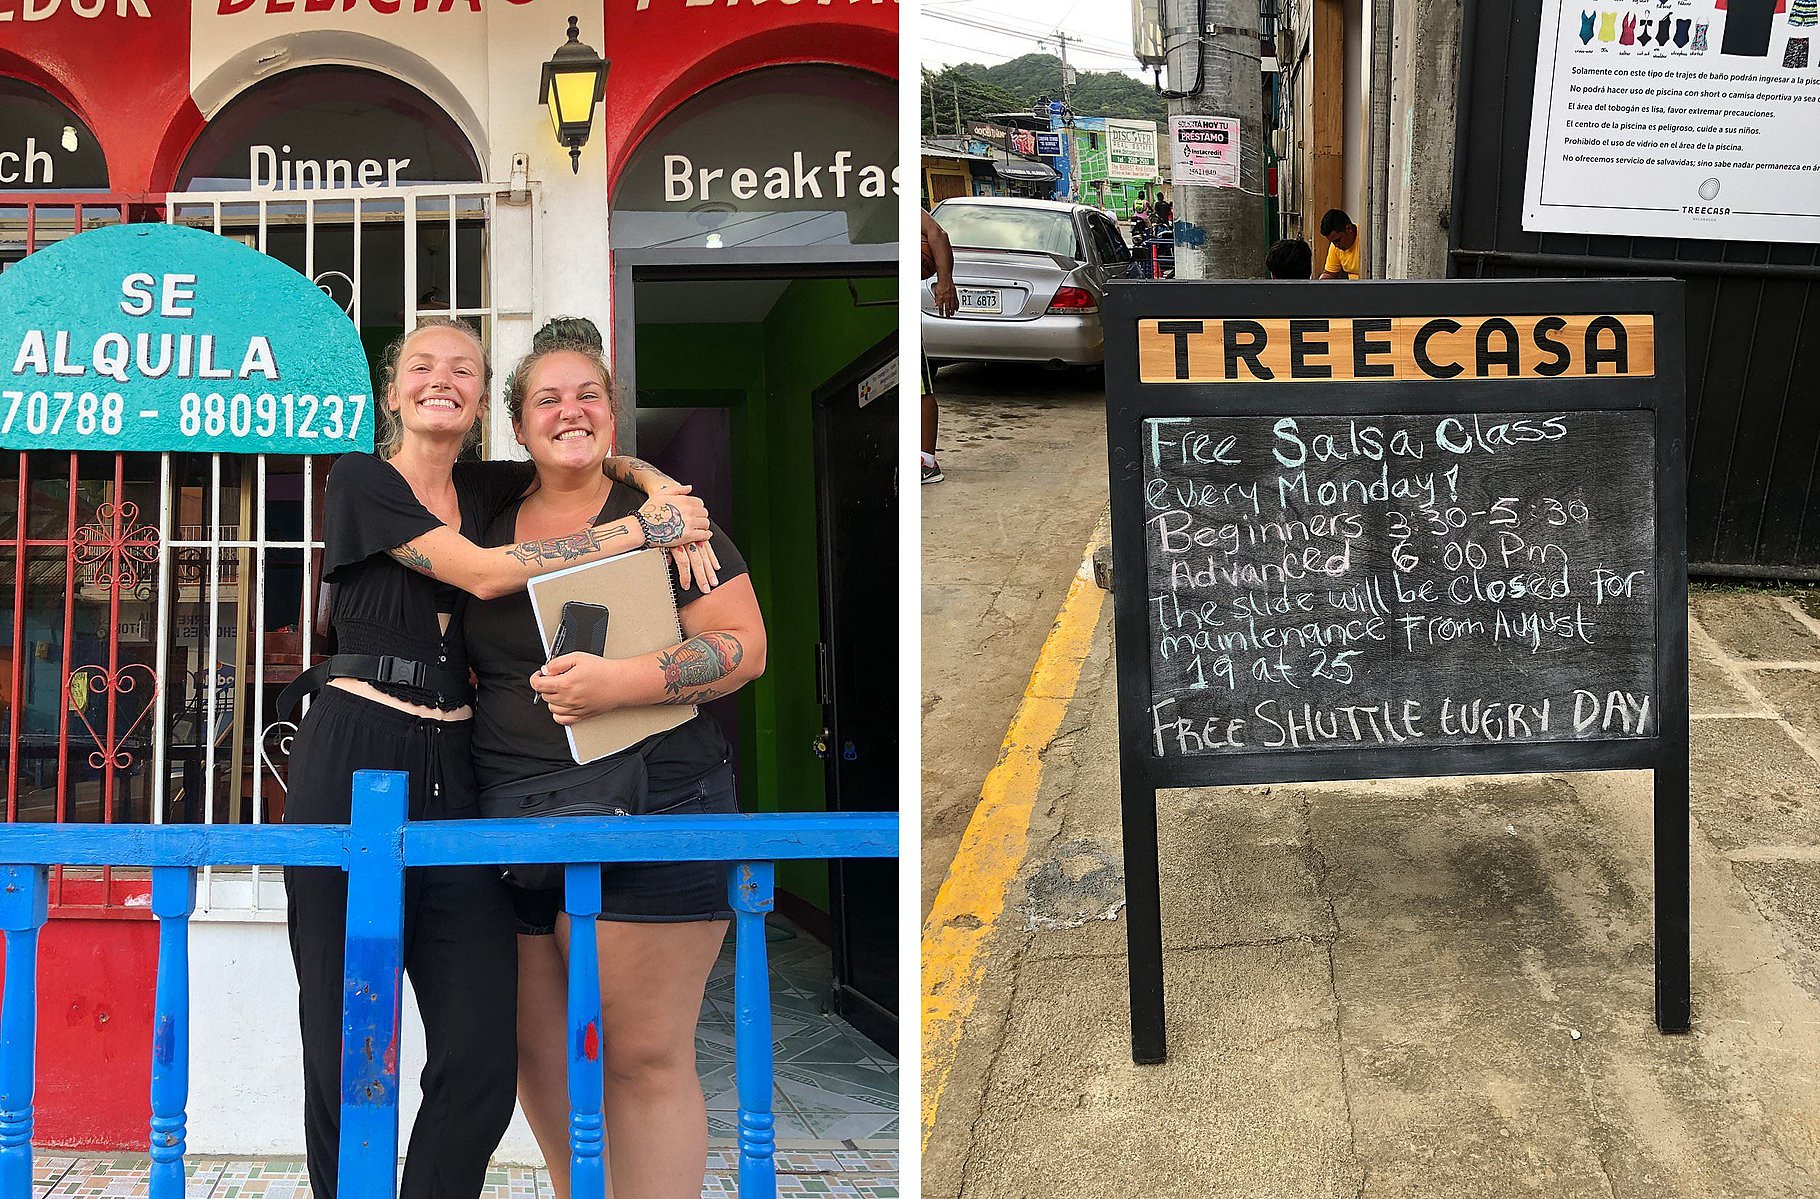 DELICIAS
ch
Dinner
Breakfas
SE
ALQUILA
70788 - 88091237
DISCOVER
REAL ESTATE
SOLICITÁ HOY TU
PRÉSTAMO
instacredit
RI 6873
Solamente con este tipo de trajes de baño podrán ingresar a la pisc
No podrá hacer uso de piscina con short o camisa deportiva ya sea
El área del tobogán es lisa, favor extremar precauciones.
El centro de la piscina es peligroso, cuide a sus niños.
Prohibido el uso de vidrio en el área de la piscina.
No ofrecemos servicio de salvavidas; sino sabe nadar permanezca en ár
TREECASA
NICARAGUA
TREECASA
Free Salsa Class
every Monday!
Beginners 3:30-5:30
Advanced 6:00 Pm
the slide will be closed for
maintenance From August
19 at 25
FREE SHUTTLE EVERY DAY